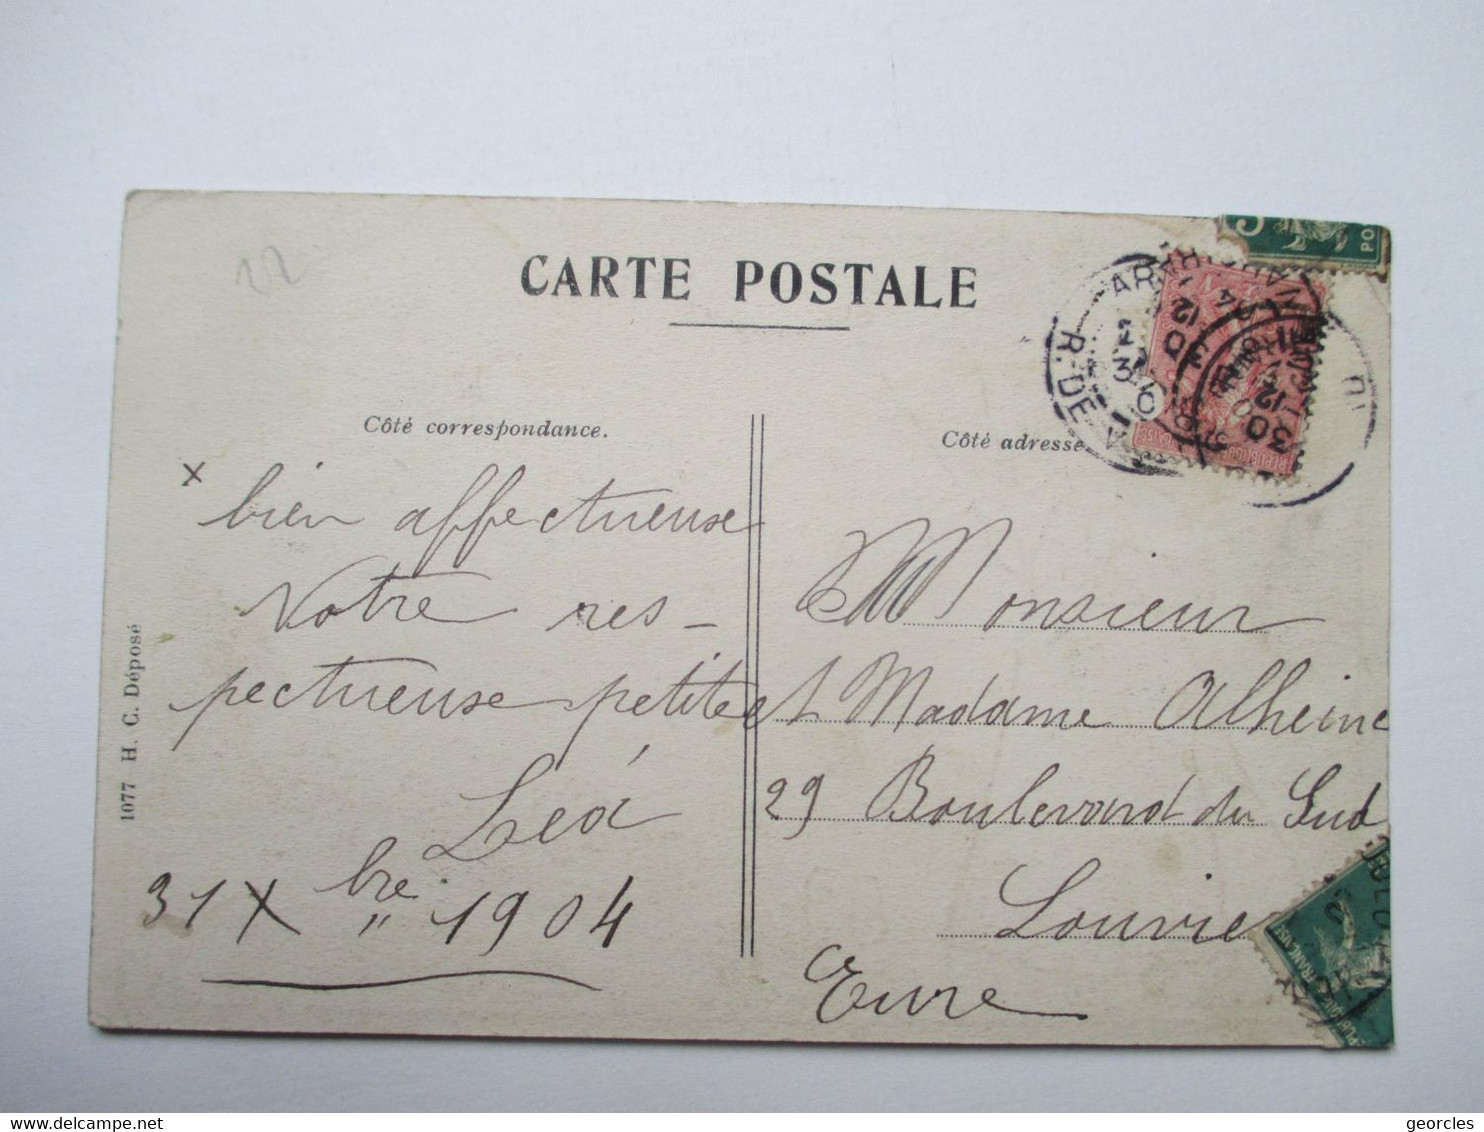 22
CARTE POSTALE
Côté correspondance.
Côté adresse
x bien affectueuse
Votre res-
pectueuse petite
Leá
31 Xbre 1904
Monsieur
et Madame Alheine
29 Boulevard du Sud
Louvie
Eure
1077 H. C. Déposé
R. DE
30
12
georcles